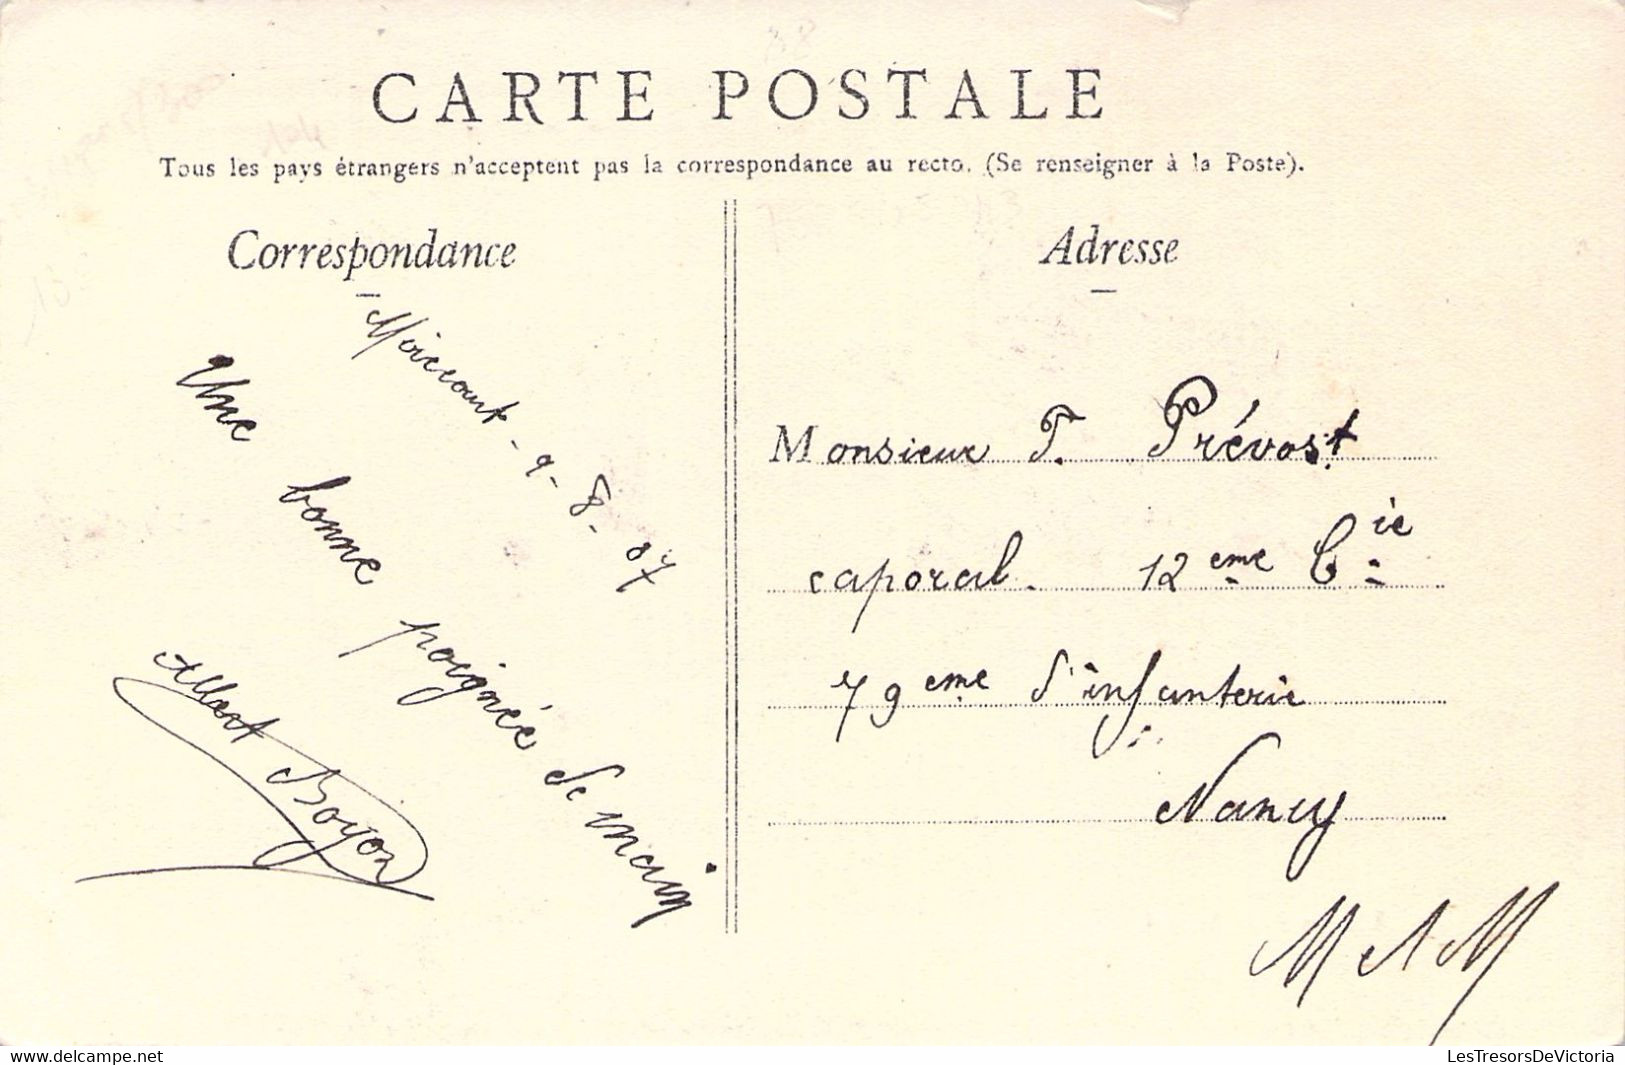 CARTE POSTALE
Tous les pays étrangers n'acceptent pas la correspondance au recto. (Se renseigner à la Poste).
Correspondance
9-8-07
Une bonne poignée de main
Albert Boyon
Adresse
Monsieur P. Prévost
caporal. 12eme Cie
79eme d'infanterie
Nancy
M et M
www.delcampe.net
LesTresorsDeVictoria